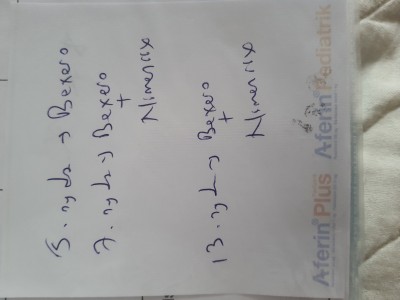 5. ayda → Bexero
7. ayda → Bexero
+
Nimenrix
13. ayda → Bexero
+
Nimenrix
Aferin Plus Aferin Pediatrik